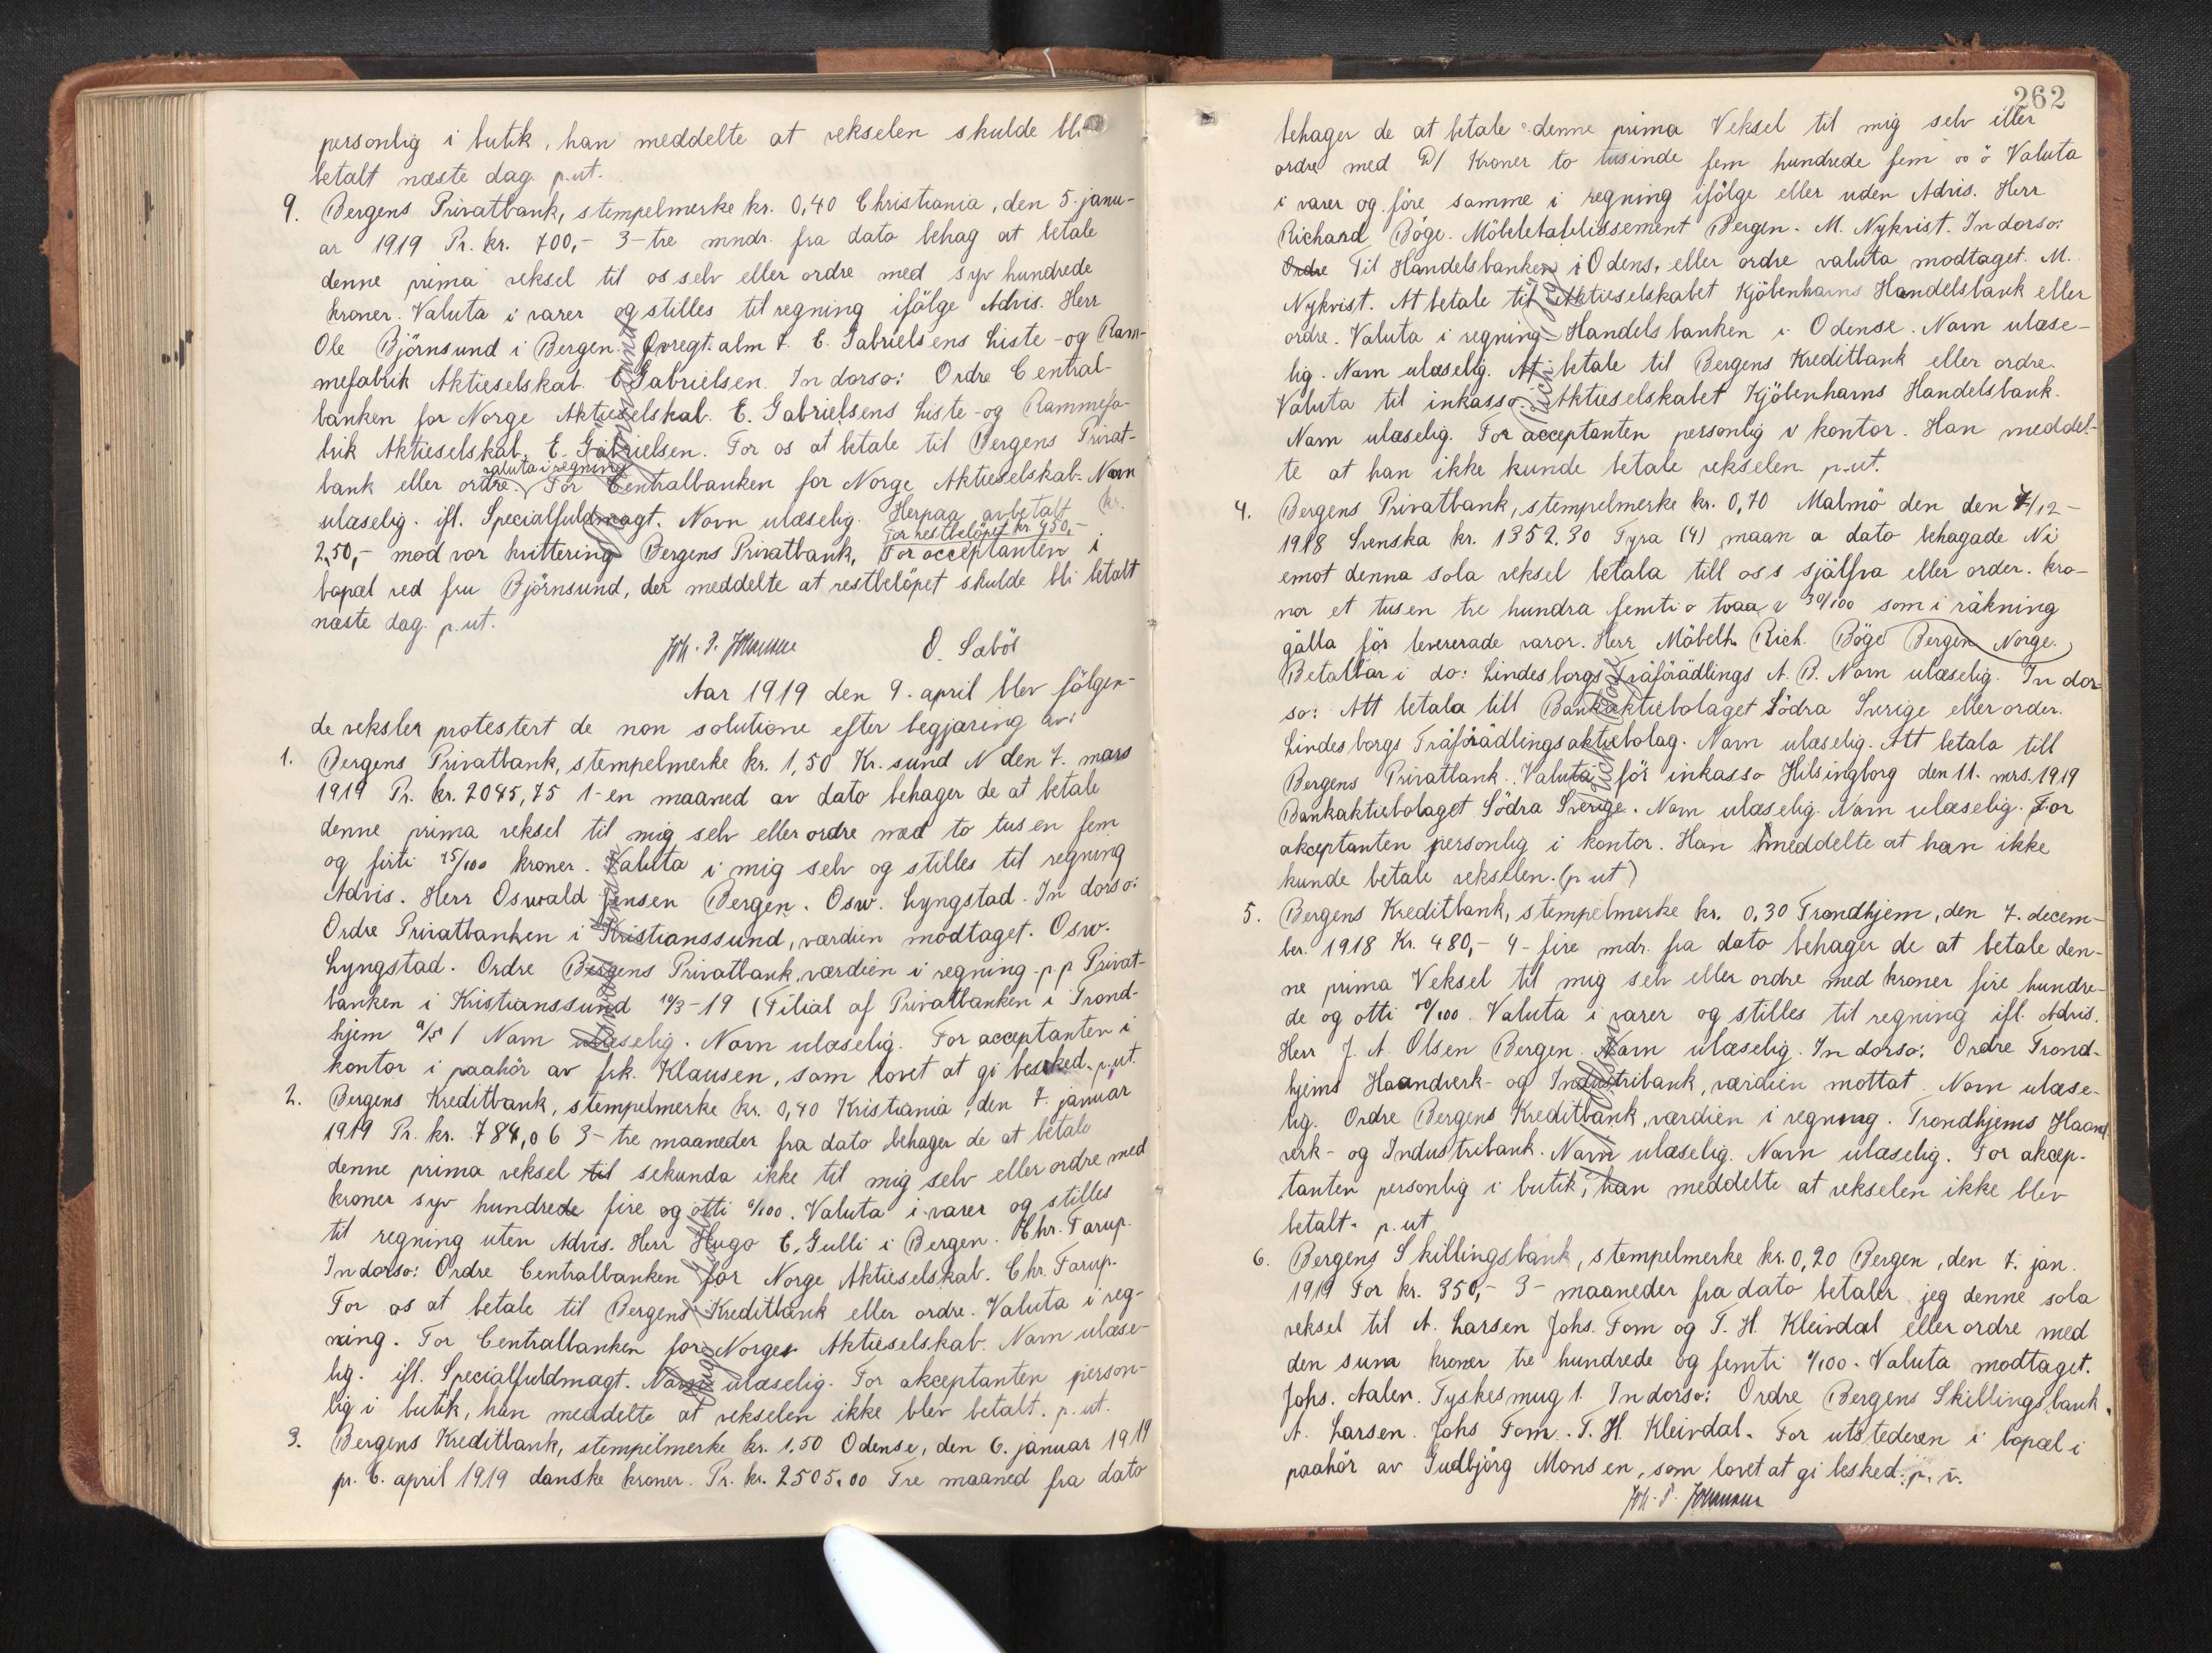 personlig i butik, han meddelte at vekselen skulde bli
betalt næste dag. p.ut.
9. Bergens Privatbank, stempelmerke kr. 0,40 Christiania, den 5. janu-
ar 1919 Pr. kr. 700,- 3-tre mndr. fra dato behag at betale
denne prima veksel til os selv eller ordre med syv hundrede
kroner. Valuta i varer og stilles til regning ifölge Advis. Herr
Ole Björnsund i Bergen. Ovregt. alm 7. E. Gabrielsens Liste- og Ram-
mefabrik Aktieselskab. E Gabrielsen. In dorso: Ordre Central-
banken for Norge Aktieselskab. E. Gabrielsens Liste- og Rammefa-
brik Aktieselskab. E. Gabrielsen. For os at betale til Bergens Privat-
valuta i regning
bank eller ordre. For Centralbanken for Norge Aktieselskab. Navn
ulæselig. ifl. Specialfuldmagt. Navn ulæselig. Herpaa avbetalt kr.
For restbelöpet kr 450,-
250,- mod vor kvittering Bergens Privatbank, For acceptanten i
bopæl ved fru Björnsund, der meddelte at restbelöpet skulde bli betalt
næste dag. p.ut.
Joh. P. Johannesen O. Sæböe
Aar 1919 den 9. april blev fölgen-
de veksler protestert de non solutione efter begjæring av:
1. Bergens Privatbank, stempelmerke kr. 1,50 Kr.sund N den 7. mars
1919 Pr. kr. 2045,75 1-en maaned av dato behager de at betale
denne prima veksel til mig selv eller ordre med to tusen fem
og firti 75/100 kroner. Valuta i mig selv og stilles til regning
Advis. Herr Oswald Jensen Bergen. Osw. Lyngstad. In dorso:
Ordre Privatbanken i Kristianssund, værdien modtaget. Osw.
Lyngstad. Ordre Bergens Privatbank, værdien i regning. p.p Privat-
banken i Kristianssund 10/3-19 (Filial af Privatbanken i Trond-
hjem A/S / Navn ulæselig. Navn ulæselig. For acceptanten i
kontor i paahör av frk. Klausen, som lovet at gi besked. p.ut.
2. Bergens Kreditbank, stempelmerke kr. 0,40 Kristiania, den 7. januar
1919 Pr. kr. 784,06 3-tre maaneder fra dato behager de at betale
denne prima veksel til sekunda ikke til mig selv eller ordre med
kroner syv hundrede fire og otti 6/100. Valuta i varer og stilles
til regning uten Advis. Herr Hugo E. Gulli i Bergen. Chr. Tarup.
In dorso: Ordre Centralbanken for Norge Aktieselskab. Chr. Tarup.
For os at betale til Bergens Kreditbank eller ordre. Valuta i reg-
ning. For Centralbanken for Norges Aktieselskab. Navn ulæse-
lig. ifl. Specialfuldmagt. Navn ulæselig. For akceptanten person-
lig i butik, han meddelte at vekselen ikke blev betalt. p.ut.
3. Bergens Kreditbank, stempelmerke kr. 1.50 Odense, den 6. januar 1919
pr. 6. april 1919 danske kroner. Pr. kr. 2505.00 Tre maaned fra dato
262
behager de at betale denne prima Veksel til mig selv eller
ordre med D/ Kroner to tusinde fem hundrede fem oo ö Valuta
i varer og före samme i regning ifölge eller uden Advis. Herr
Richard Böge. Möbeletablissement Bergen. M. Nykvist. In dorso:
Ordre Til Handelsbanken i Odens. eller ordre valuta modtaget. M.
Nykvist. At betale til Aktieselskabet Kjöbenhavns Handelsbank eller
ordre. Valuta i regning. Handelsbanken i Odense. Navn ulæse-
lig. Navn ulæselig. At betale til Bergens Kreditbank eller ordre.
Valuta til inkasso. Aktieselskabet Kjöbenhavns Handelsbank.
Navn ulæselig. For acceptanten personlig i kontor. Han meddel-
te at han ikke kunde betale vekselen. p.ut.
4. Bergens Privatbank, stempelmerke kr. 0,70 Malmö den den 7/12-
1918 Svenska kr. 1352.30 Fyra (4) maan a dato behagade Ni
emot denna sola veksel betala till oss själfva eller order. kro-
nor et tusen tre hundra femtio tvaa v 30/100 som i räkning
gälla för levererade varor. Herr Möbelh. Rich. Böge Bergen Norge.
Betalbar i do: Lindesborgs Träförädlings A. B. Navn ulæselig. In dor-
so: Att betala till Bankaktiebolaget Södra Sverige eller order.
Lindesborgs Träförädlingsaktiebolag. Navn ulæselig. Att betala till
Bergens Privatbank. Valuta för inkasso Hilsingborg den 11. mrs. 1919
Bankaktiebolaget Södra Sverige. Navn ulæselig. Navn ulæselig. For
akceptanten personlig i kontor. Han meddelte at han ikke
kunde betale vekselen. (p ut)
5. Bergens Kreditbank, stempelmerke kr. 0.30 Trondhjem, den 7. decem-
ber. 1918 Kr. 480,- 4-fire mdr. fra dato behager de at betale den-
ne prima Veksel til mig selv eller ordre med kroner fire hundre-
de og otti 00/100. Valuta i varer og stilles til regning ifl. Advis.
Herr J. A. Olsen Bergen. Navn ulæselig. In dorso: Ordre Trond-
hjems Haandverk- og Industribank, værdien mottat. Navn ulæse-
lig. Ordre Bergens Kreditbank, værdien i regning. Trondhjems Haand
verk- og Industribank. Navn ulæselig. Navn ulæselig. For akcep-
tanten personlig i butik, han meddelte at vekselen ikke blev
betalt. p.ut
6. Bergens Skillingsbank, stempelmerke kr. 0,20 Bergen, den 7. jan.
1919 For kr. 350,- 3- maaneder fra dato betaler jeg denne sola
veksel til A. Larsen Johs. Fom og T. H. Kleivdal eller ordre med
den sum kroner tre hundrede og femti 0/100. Valuta modtaget.
Johs. Aalen. Tyskesmug 1. In dorso: Ordre Bergens Skillingsbank.
A. Larsen. Johs Fom. T. H. Kleivdal. For utstederen i bopæl i
paahör av Gudbjörg Monsen, som lovet at gi besked. p. u.
Joh. P. Johannesen